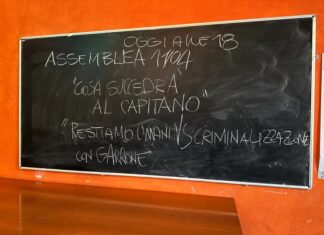 OGGI ALLE 18
ASSEMBLEA 11/04
"COSA SUCCEDRÀ
AL CAPITANO"
"RESTIAMO UMANI VS CRIMINALIZZAZIONE
CON GARRONE"